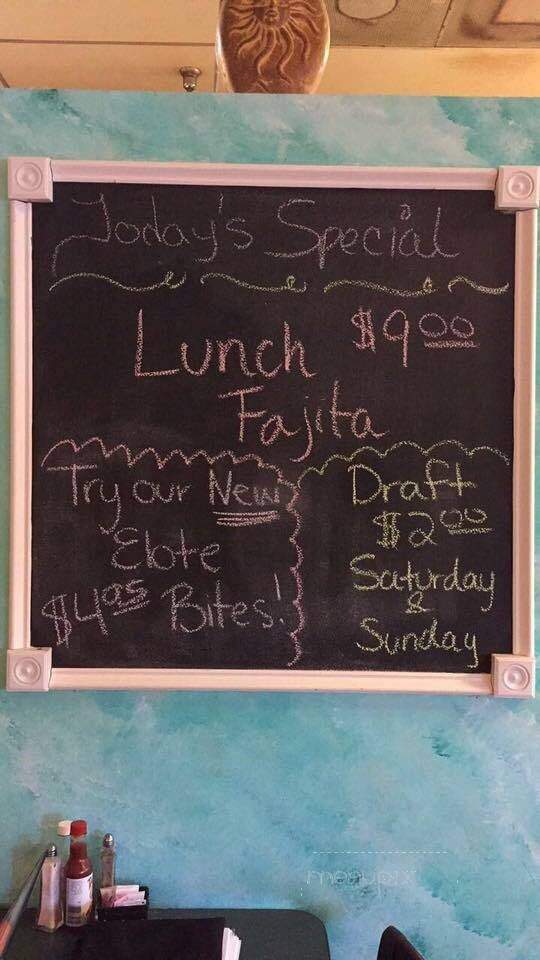 Today's Special
Lunch $9.00
Fajita
Try our New
Elote
$4.95 Bites!
Draft
$2.00
Saturday
&
Sunday